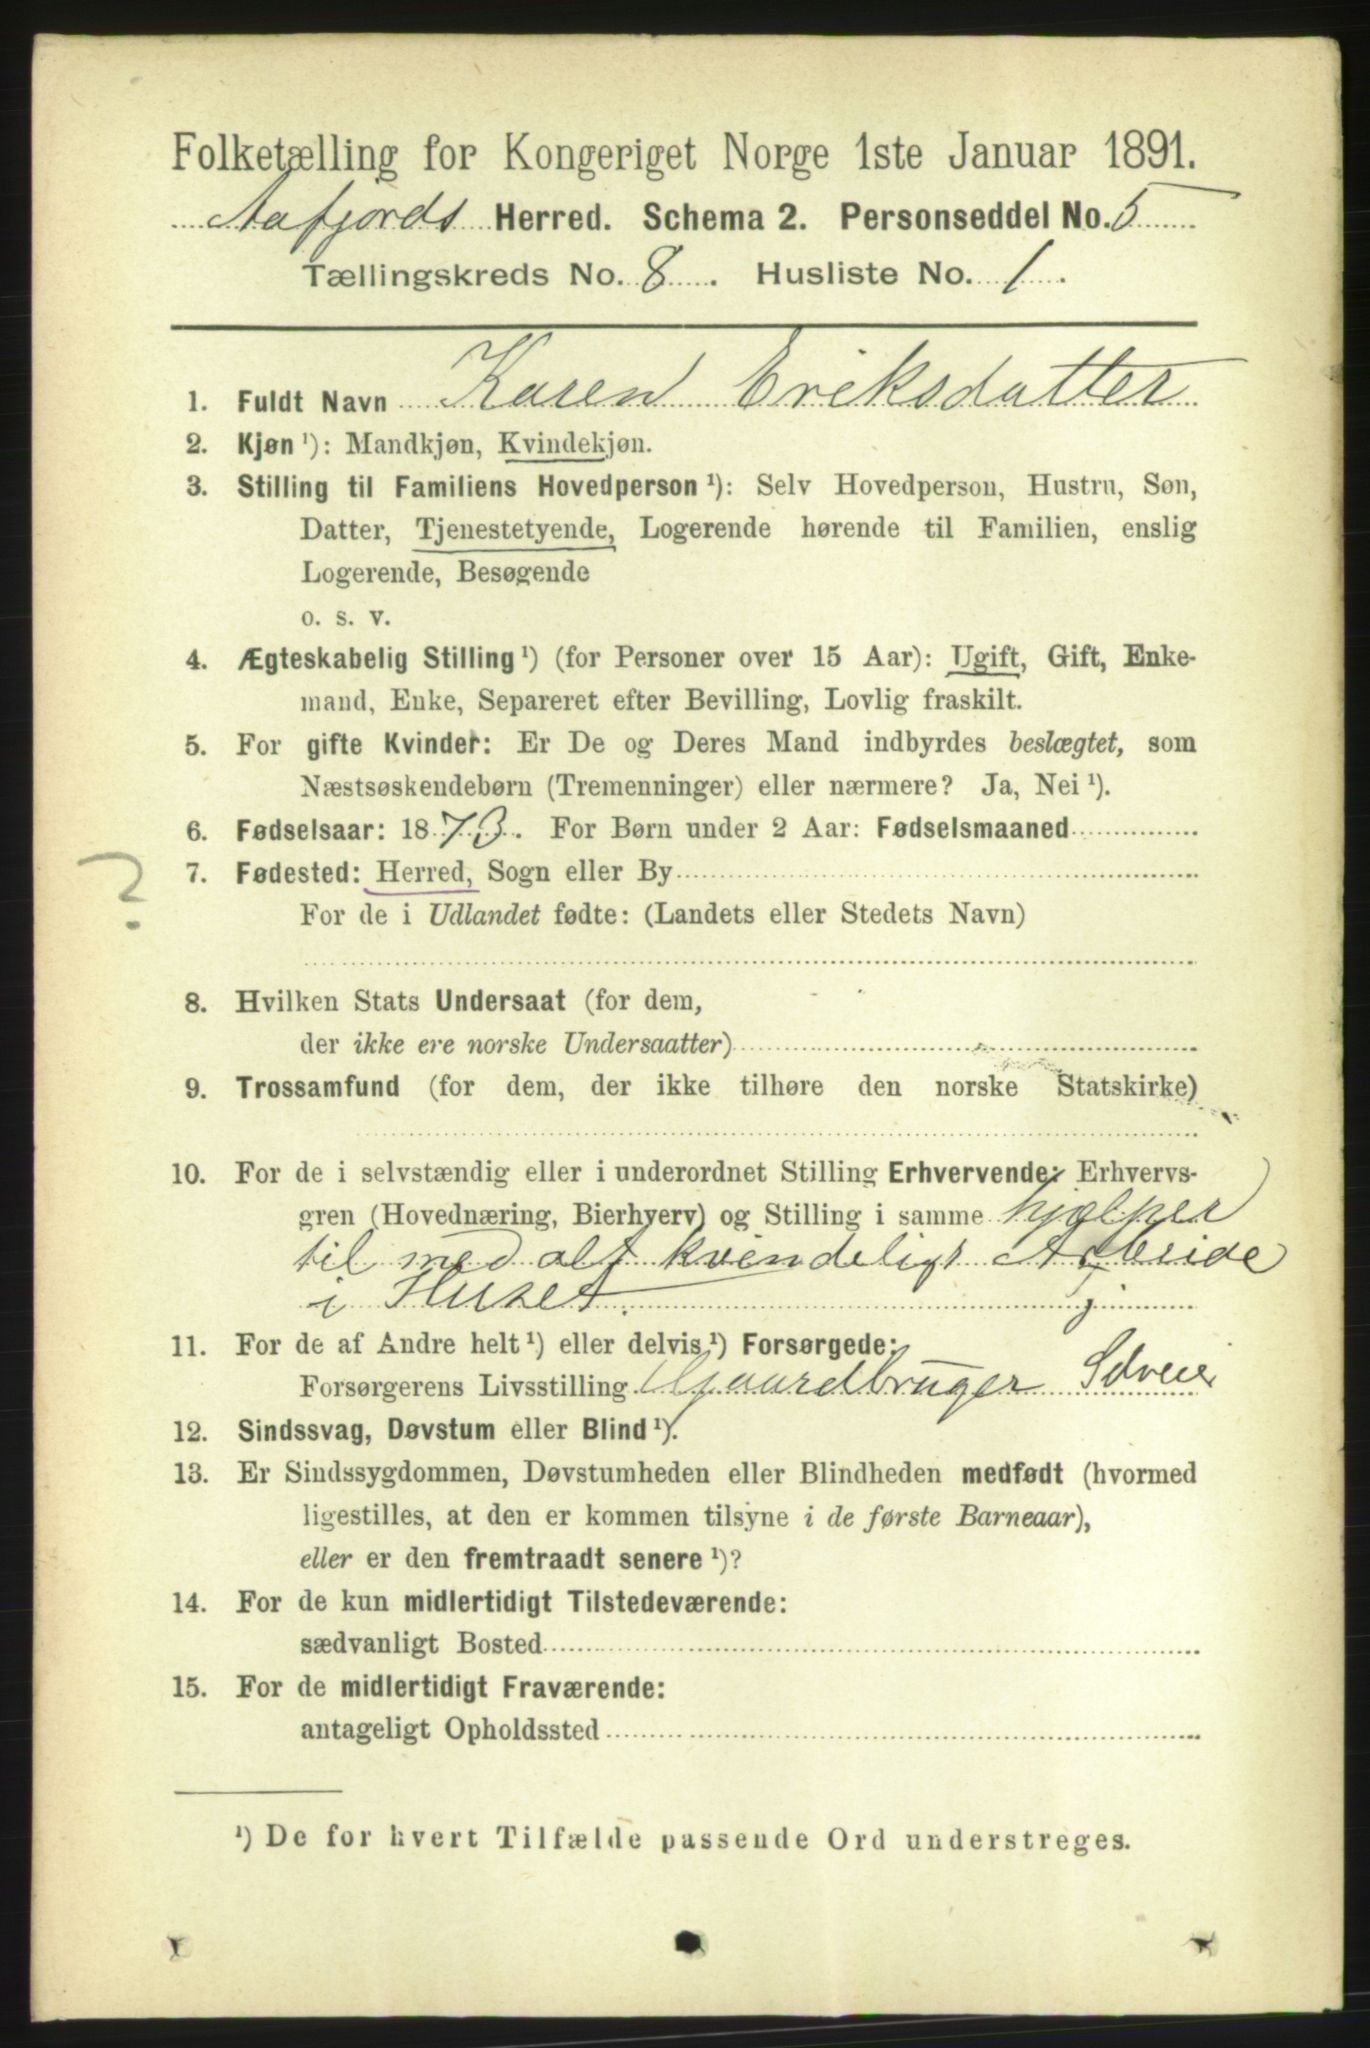 Folketælling for Kongeriget Norge 1ste Januar 1891.
Aafjords Herred. Schema 2. Personseddel No. 5
Tællingskreds No. 8. Husliste No. 1.
1. Fuldt Navn Karen Eriksdatter
2. Kjøn ¹): Mandkjøn, Kvindekjøn.
3. Stilling til Familiens Hovedperson ¹): Selv Hovedperson, Hustru, Søn,
Datter, Tjenestetyende, Logerende hørende til Familien, enslig
Logerende, Besøgende
o. s. v.
4. Ægteskabelig Stilling ¹) (for Personer over 15 Aar): Ugift, Gift, Enke-
mand, Enke, Separeret efter Bevilling, Lovlig fraskilt.
5. For gifte Kvinder: Er De og Deres Mand indbyrdes beslægtet, som
Næstsøskendebørn (Tremenninger) eller nærmere? Ja, Nei ¹).
6. Fødselsaar: 1873. For Børn under 2 Aar: Fødselsmaaned
?
7. Fødested: Herred, Sogn eller By
For de i Udlandet fødte: (Landets eller Stedets Navn)
8. Hvilken Stats Undersaat (for dem,
der ikke ere norske Undersaatter)
9. Trossamfund (for dem, der ikke tilhøre den norske Statskirke)
10. For de i selvstændig eller i underordnet Stilling Erhvervende: Erhvervs-
gren (Hovednæring, Bierhverv) og Stilling i samme hjælper
til med alt kvindeligt Arbeide
i Huset.
11. For de af Andre helt ¹) eller delvis ¹) Forsørgede:
Forsørgerens Livsstilling Gaardbruger Selveier
12. Sindssvag, Døvstum eller Blind ¹).
13. Er Sindssygdommen, Døvstumheden eller Blindheden medfødt (hvormed
ligestilles, at den er kommen tilsyne i de første Barneaar),
eller er den fremtraadt senere ¹)?
14. For de kun midlertidigt Tilstedeværende:
sædvanligt Bosted
15. For de midlertidigt Fraværende:
antageligt Opholdssted
¹) De for hvert Tilfælde passende Ord understreges.